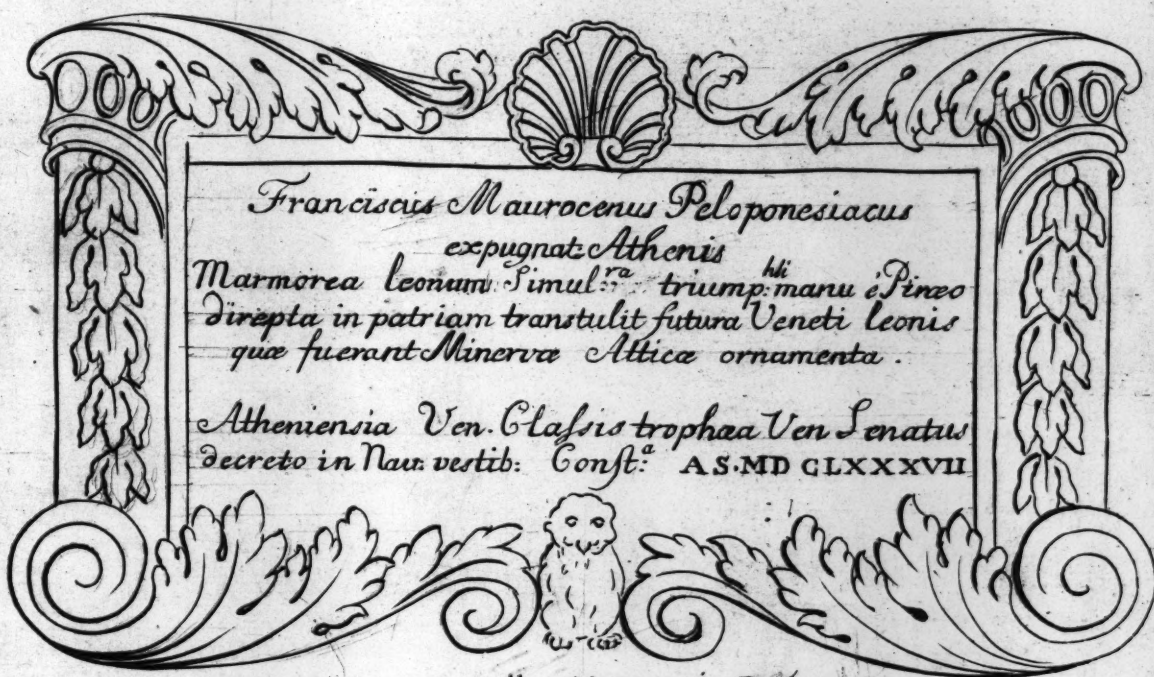 Franciscus Maurocenus Peloponesiacus
expugnat: Athenis
Marmorea leonum Simul:ra triump:hli manu è Piræo
direpta in patriam transtulit futura Veneti leonis
quæ fuerant Minervæ Atticæ ornamenta .
Atheniensia Ven. Claſsis trophæa Ven Senatus
decreto in Nav: vestib: Conſt:a AS·MDCLXXXVII